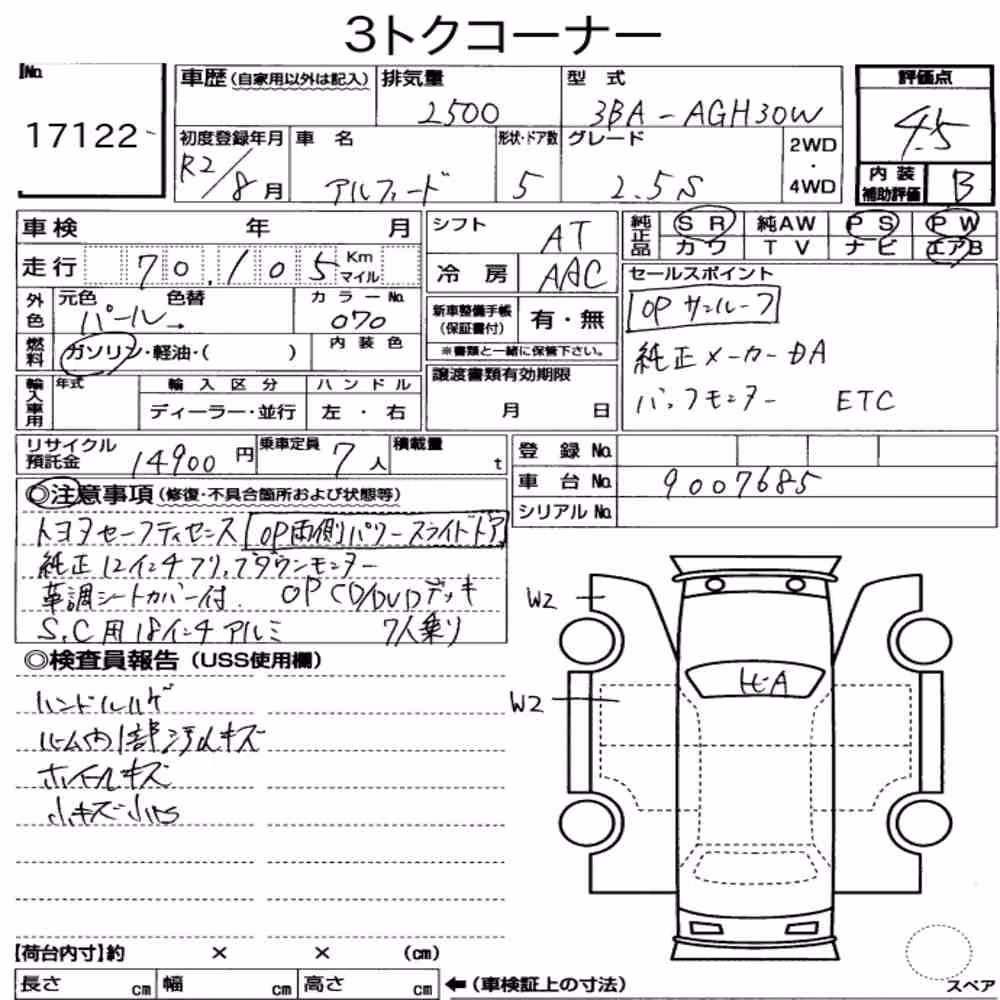 3トクコーナー
No.
17122
車歴 (自家用以外は記入)
排気量
2500
型式
3BA-AGH30W
評価点
4.5
初度登録年月
R2/8月
車名
アルファード
形状・ドア数
5
グレード
2.5S
2WD
・
4WD
内装
補助評価
B
車検 年 月
走行 70,105 Km マイル
シフト
AT
冷房 AAC
純正品
SR 純AW PS PW
カワ TV ナビ エアB
外色
元色 色替
パール→
カラーNo.
070
燃料
ガソリン・軽油・( )
内装色
新車整備手帳
(保証書付)
有・無
※書類と一緒に保管下さい。
セールスポイント
OPサンルーフ
純正メーカーDA
バックモニター ETC
輸入車用
年式
輸入区分
ディーラー・並行
ハンドル
左・右
譲渡書類有効期限
月 日
リサイクル
預託金
14900円
乗車定員
7人
積載量
t
登録No.
車台No. 9007685
シリアルNo.
◎注意事項 (修復・不具合箇所および状態等)
トヨタセーフティセンス OP両側パワースライドドア
純正12インチフリップダウンモニター
革調シートカバー付 OP CD/DVDデッキ
S,C用18インチアルミ 7人乗り
◎検査員報告 (USS使用欄)
ハンドルハゲ
ルーム内1部汚れキズ
ホイールキズ
小キズ小凹
W2
W2
ヒA
【荷台内寸】約 × × (cm)
長さ cm 幅 cm 高さ cm
←(車検証上の寸法)
スペア